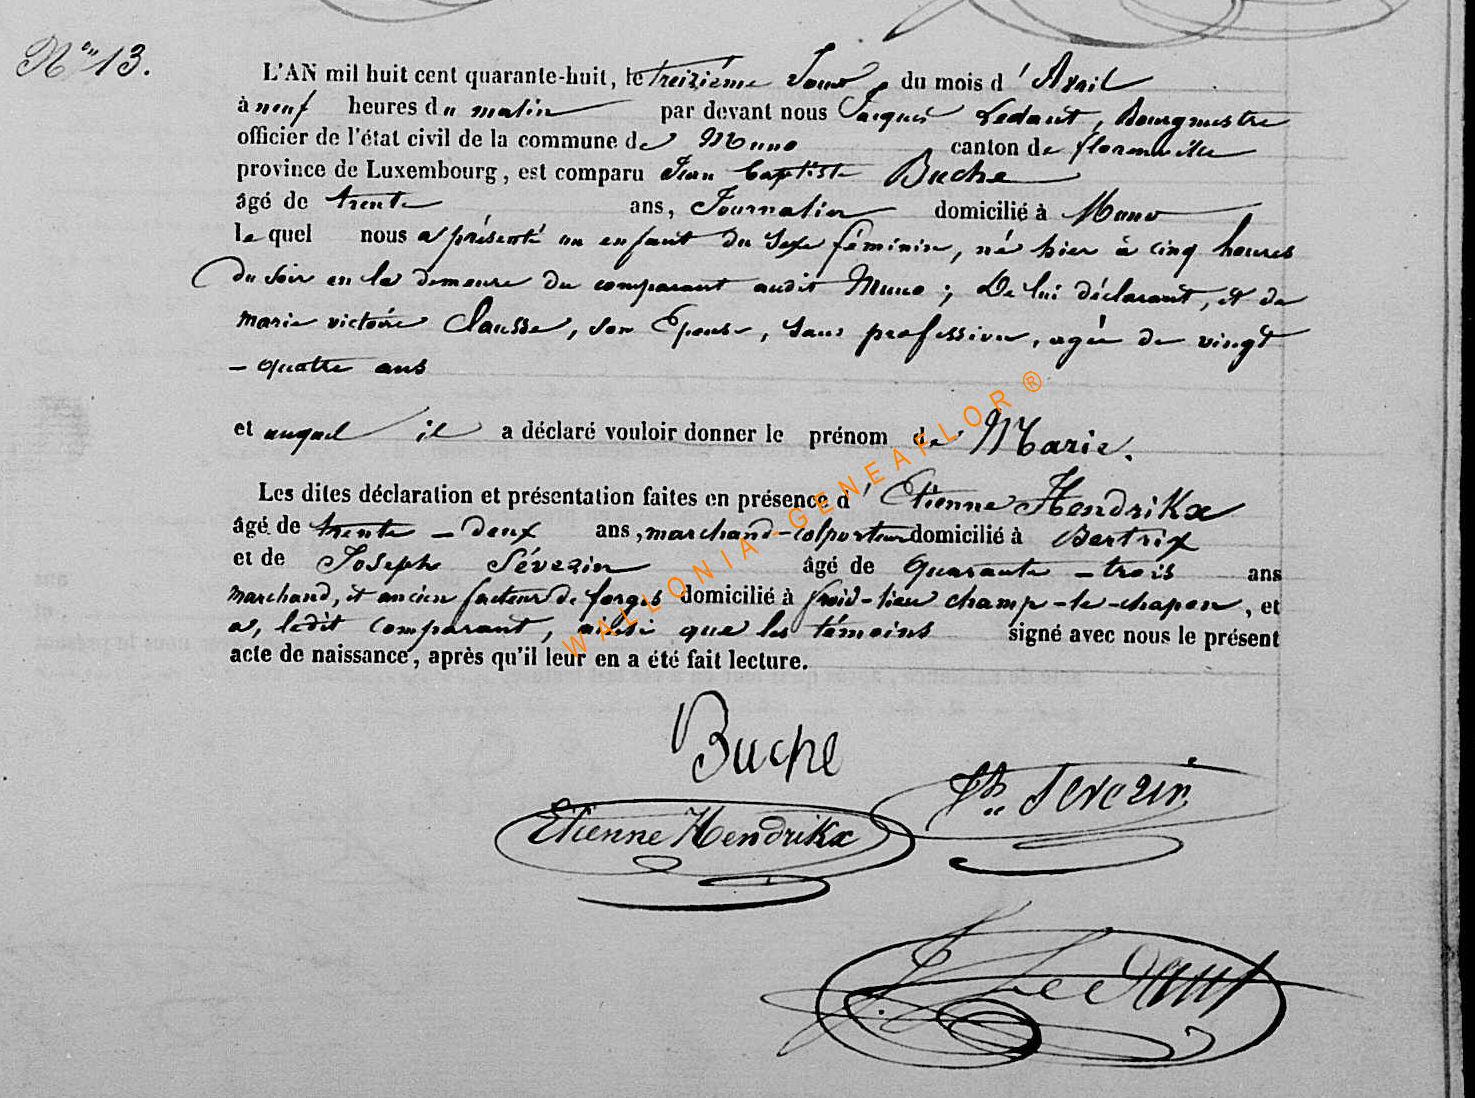 N° 13.
L'AN mil huit cent quarante-huit, le treizième Jour du mois d' Avril
à neuf heures du matin par devant nous Jacques Ledant, Bourgmestre
officier de l'état civil de la commune de Muno canton de florenville
province de Luxembourg, est comparu Jean Baptiste Buche
âgé de trente ans, Journalier domicilié à Muno
le quel nous a présenté un enfant du sexe féminin, né hier à cinq heures
du soir en la demeure du comparant audit Muno ; De lui déclarant, et de
marie victoire Clausse, son Epouse, sans profession, agée de vingt
- quatre ans
et auquel il a déclaré vouloir donner le prénom de Marie.
Les dites déclaration et présentation faites en présence d' Etienne Hendrikx
âgé de trente - deux ans, marchand-colporteur domicilié à Bertrix
et de Joseph Séverin âgé de quarante - trois ans
marchand, et ancien facteur de forges domicilié à froid-lieu champ-le-chapon, et
a, ledit comparant, ainsi que les témoins signé avec nous le présent
acte de naissance, après qu'il leur en a été fait lecture.
WALLONIA-GENEAFLOR ®
Buche
Severin
Etienne Hendrikx
J Ledant